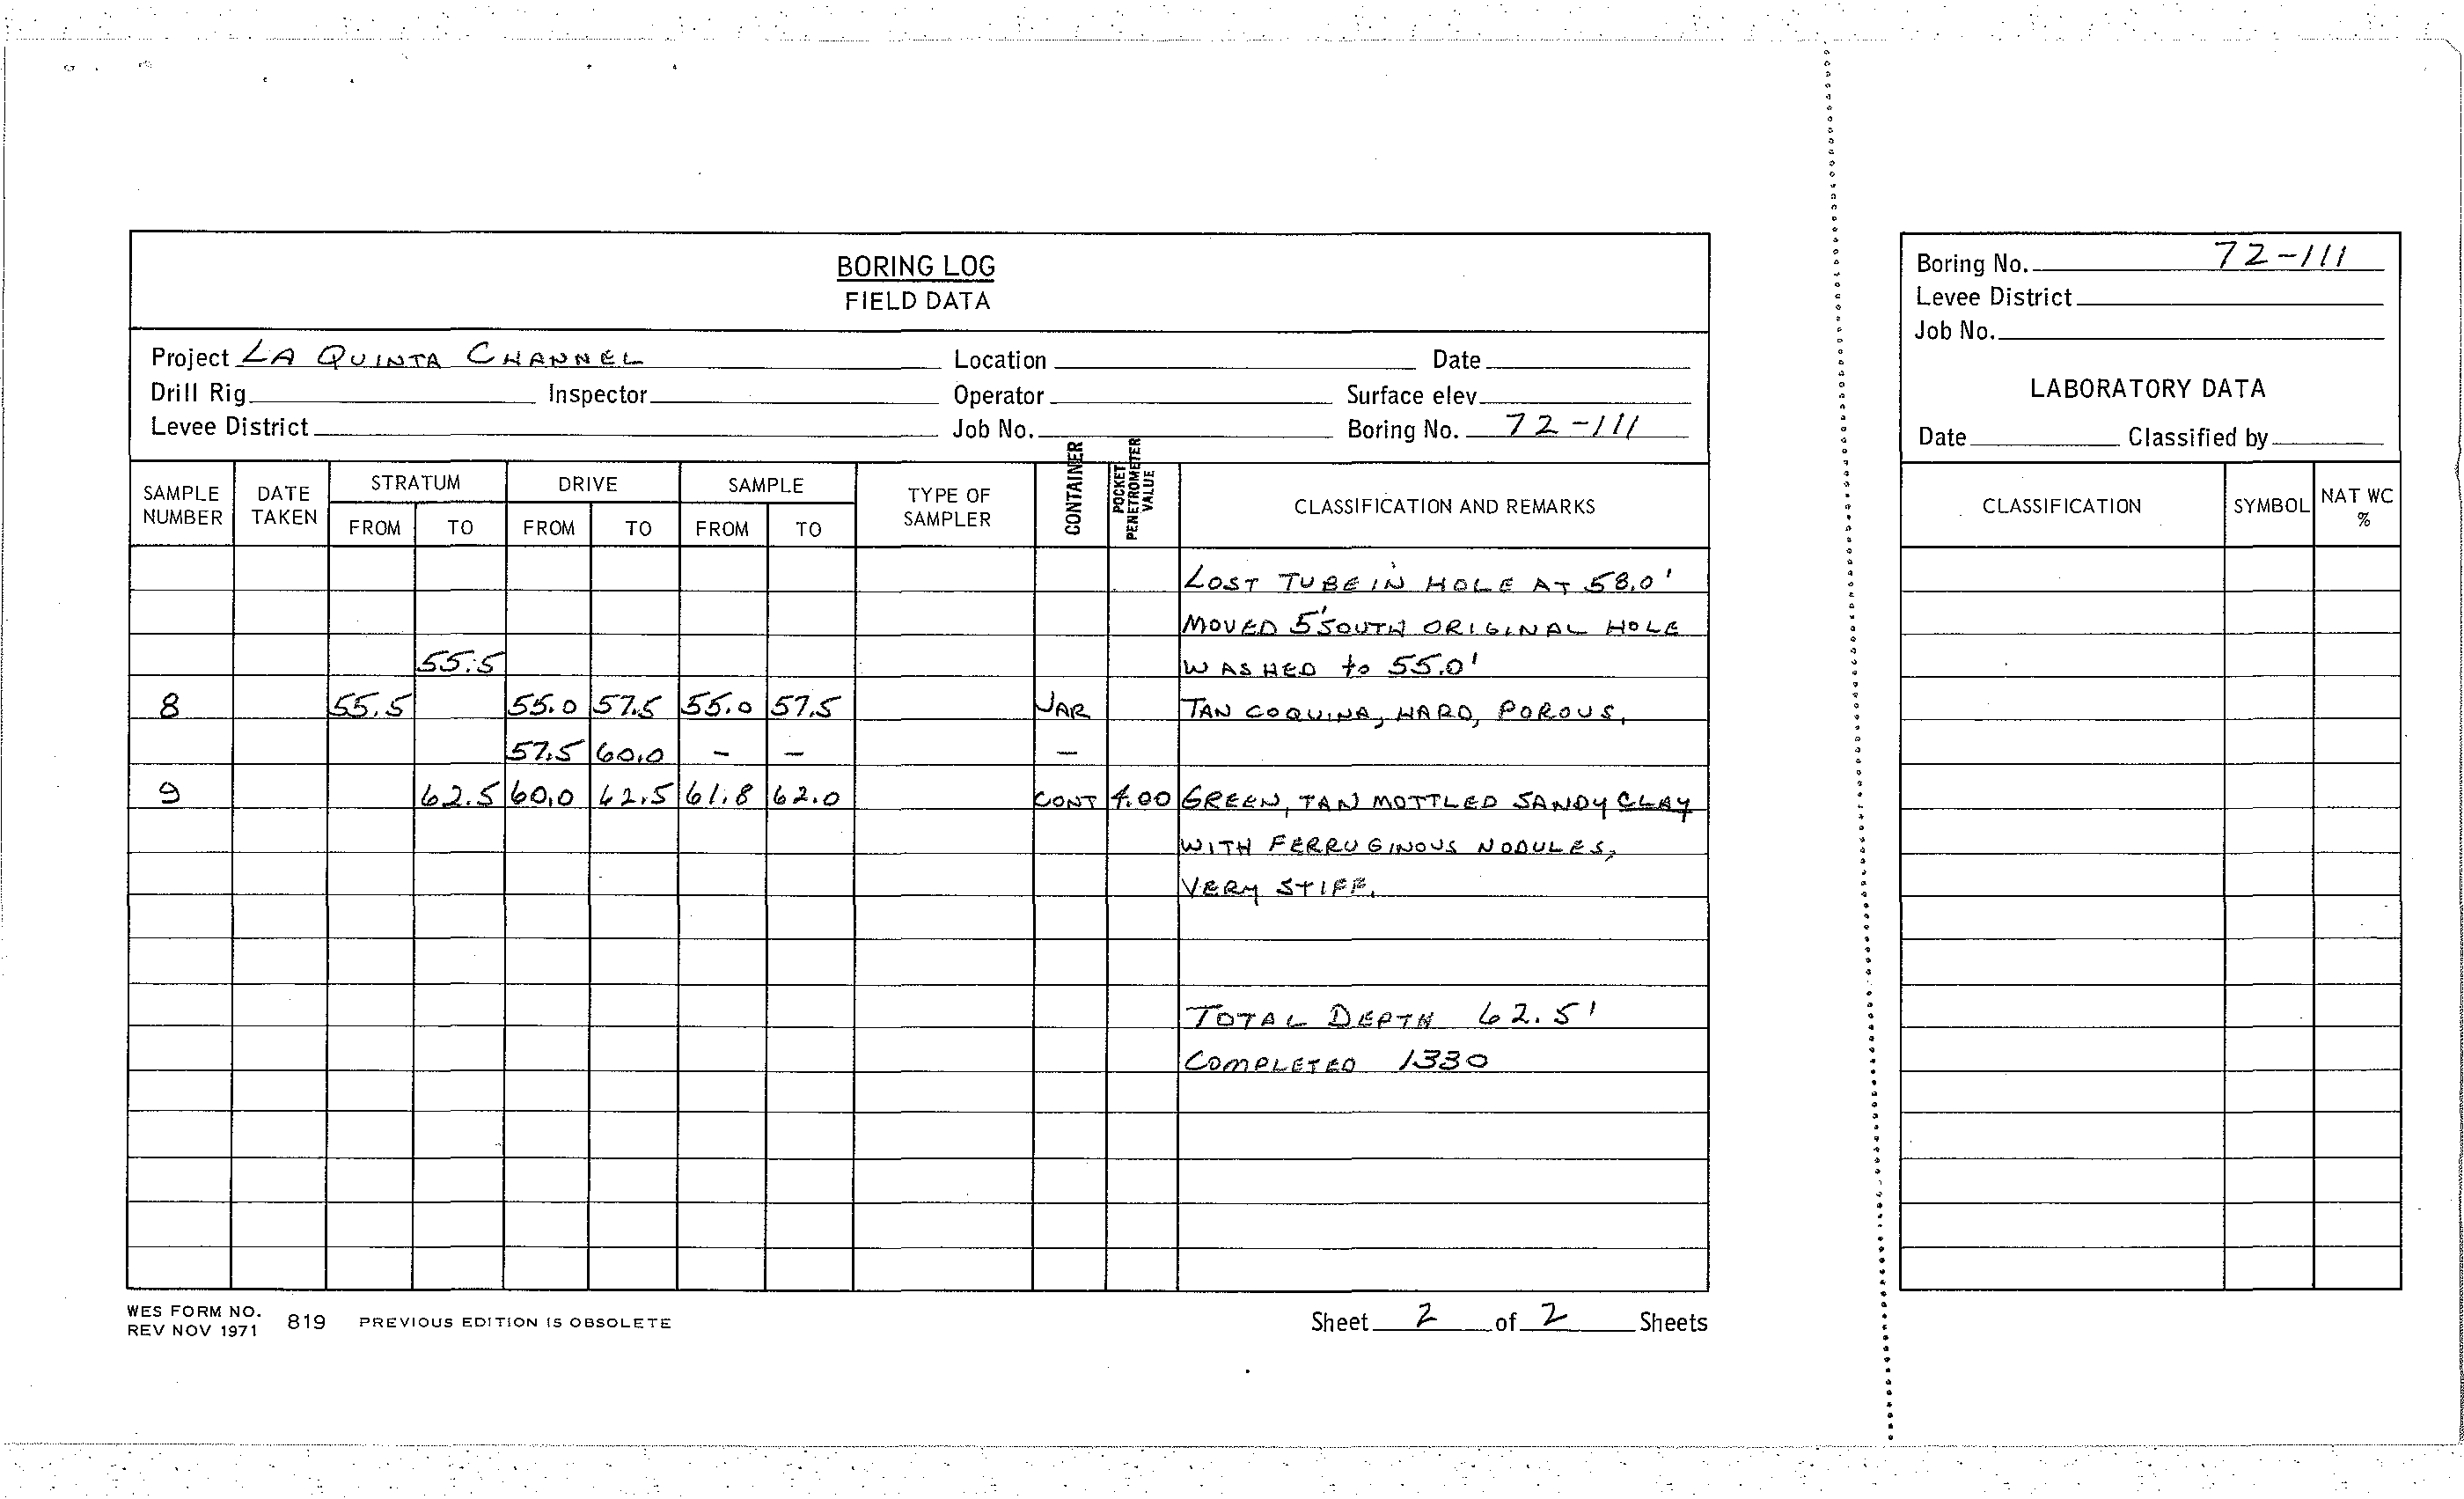 BORING LOG
FIELD DATA
Project LA QUINTA CHANNEL Location Date
Drill Rig Inspector Operator Surface elev
Levee District Job No. Boring No. 72-111
SAMPLE NUMBER DATE TAKEN STRATUM FROM TO DRIVE FROM TO SAMPLE FROM TO TYPE OF SAMPLER CONTAINER POCKET PENETROMETER VALUE CLASSIFICATION AND REMARKS
LOST TUBE IN HOLE AT 58.0'
MOVED 5' SOUTH ORIGINAL HOLE
55.5 WASHED to 55.0'
8 55.5 55.0 57.5 55.0 57.5 JAR TAN COQUINA, HARD, POROUS,
57.5 60.0 - - -
9 62.5 60.0 62.5 61.8 62.0 CONT 4.00 GREEN, TAN MOTTLED SANDY CLAY
WITH FERRUGINOUS NODULES,
VERY STIFF.
TOTAL DEPTH 62.5'
COMPLETED 1330
WES FORM NO. 819 PREVIOUS EDITION IS OBSOLETE
REV NOV 1971
Sheet 2 of 2 Sheets
Boring No. 72-111
Levee District
Job No.
LABORATORY DATA
Date Classified by
CLASSIFICATION SYMBOL NAT WC %